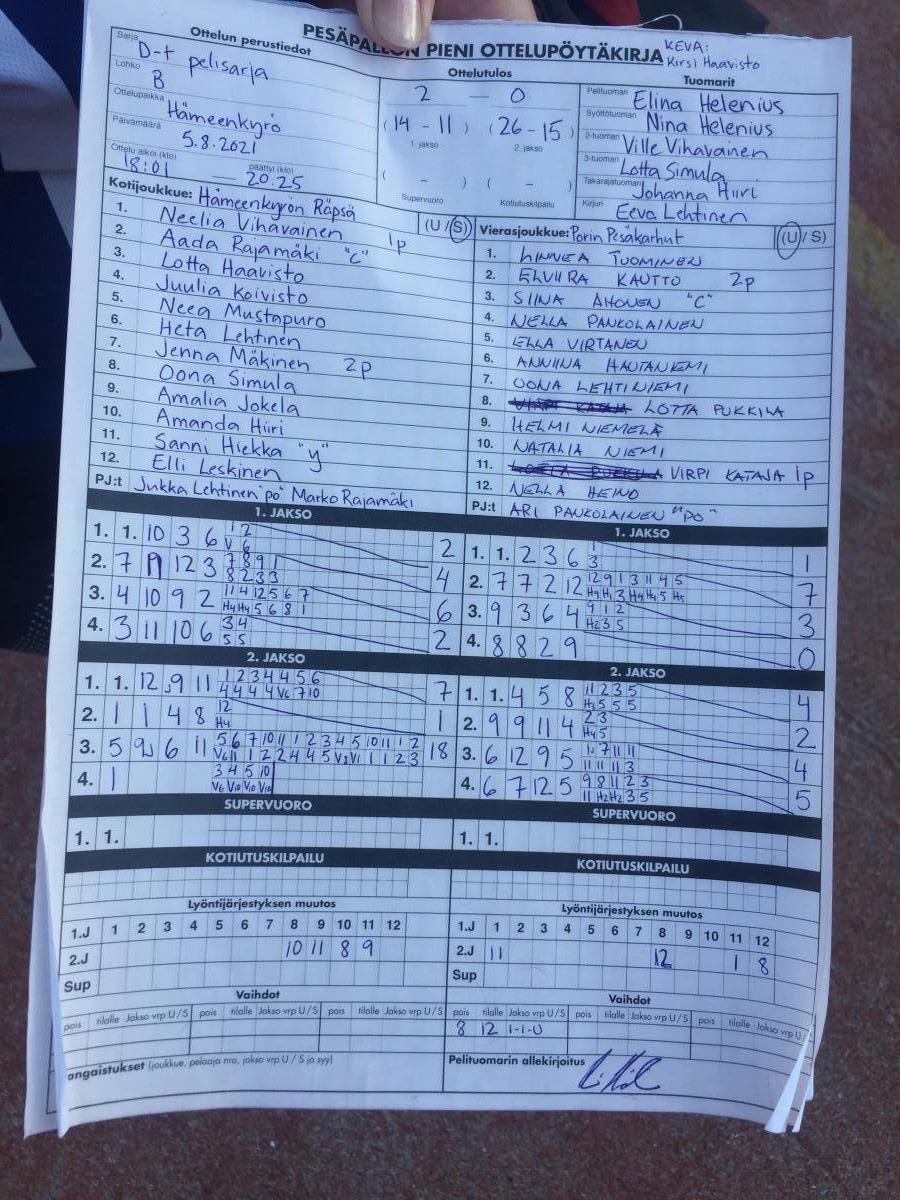 PESÄPALLON PIENI OTTELUPÖYTÄKIRJA
KEVA:
Kirsi Haavisto
Ottelun perustiedot
Sarja D-t pelisarja
Lohko B
Ottelupaikka Hämeenkyrö
Päivämäärä 5.8.2021
Ottelu alkoi (klo) 18:01 — päättyi (klo) 20.25
Ottelutulos
2 — 0
(14 - 11) (26 - 15)
1. jakso 2. jakso
( - ) ( - )
Supervuoro Kotiutuskilpailu
Tuomarit
Pelituomari Elina Helenius
Syöttötuomari Nina Helenius
2-tuomari Ville Vihavainen
3-tuomari Lotta Simula
Takarajatuomari Johanna Hiiri
Kirjuri Eeva Lehtinen
Kotijoukkue: Hämeenkyrön Räpsä (U / S)
1. Neelia Vihavainen 1p
2. Aada Rajamäki "C"
3. Lotta Haavisto
4. Juulia Koivisto
5. Neea Mustapuro
6. Heta Lehtinen
7. Jenna Mäkinen 2p
8. Oona Simula
9. Amalia Jokela
10. Amanda Hiiri
11. Sanni Hiekka "y"
12. Elli Leskinen
PJ:t Jukka Lehtinen "po" Marko Rajamäki
Vierasjoukkue: Porin Pesäkarhut (U / S)
1. LINNEA TUOMINEN
2. ELVIIRA KAUTTO 2p
3. SIINA AHONEN "C"
4. NELLA PANKOLAINEN
5. ELLA VIRTANEN
6. ANNIINA HAUTANIEMI
7. OONA LEHTINIEMI
8. LOTTA PUKKILA
9. HELMI NIEMELÄ
10. NATALIA NIEMI
11. VIRPI KATAJA 1p
12. NELLA HEINO
PJ:t ARI PANKOLAINEN "PO"
1. JAKSO
1. 1. 10 3 6 1 2 2
V 6
2. 7 11 12 3 7 8 9 1 4
8 2 3 3
3. 4 10 9 2 11 4 12 5 6 7 6
H4 H4 5 6 8 1
4. 3 11 10 6 3 4 2
5 5
1. JAKSO
1. 1. 2 3 6 1 1
3
2. 7 7 2 12 12 9 1 3 11 4 5 7
H9 H1 3 H4 H4 5 H5
3. 9 3 6 4 9 1 2 3
H2 3 5
4. 8 8 2 9 0
2. JAKSO
1. 1. 12 9 11 1 2 3 4 4 5 6 7
4 4 4 4 V6 7 10
2. 1 1 4 8 12 1
H4
3. 5 9 6 11 5 6 7 10 11 1 2 3 4 5 10 11 1 2 18
V6 11 1 2 2 4 4 5 V3 V1 1 1 2 3
4. 1 3 4 5 10
V6 V10 V10 V10
2. JAKSO
1. 1. 4 5 8 11 2 3 5 4
H3 5 5 5
2. 9 9 11 4 2 3 2
H4 5
3. 6 12 9 5 1 7 11 11 4
11 11 11 3
4. 6 7 12 5 9 8 11 2 3 5
11 H2 H2 3 5
SUPERVUORO
1. 1.
SUPERVUORO
1. 1.
KOTIUTUSKILPAILU
KOTIUTUSKILPAILU
Lyöntijärjestyksen muutos
1.J 1 2 3 4 5 6 7 8 9 10 11 12
2.J 10 11 8 9
Sup
Lyöntijärjestyksen muutos
1.J 1 2 3 4 5 6 7 8 9 10 11 12
2.J 11 12 1 8
Sup
Vaihdot
pois tilalle Jakso vrp U / S pois tilalle Jakso vrp U / S pois tilalle Jakso vrp U / S
Vaihdot
pois tilalle Jakso vrp U / S pois tilalle Jakso vrp U / S pois tilalle Jakso vrp U /
8 12 1-1-U
angaistukset (joukkue, pelaaja nro, jakso vrp U / S ja syy)
Pelituomarin allekirjoitus